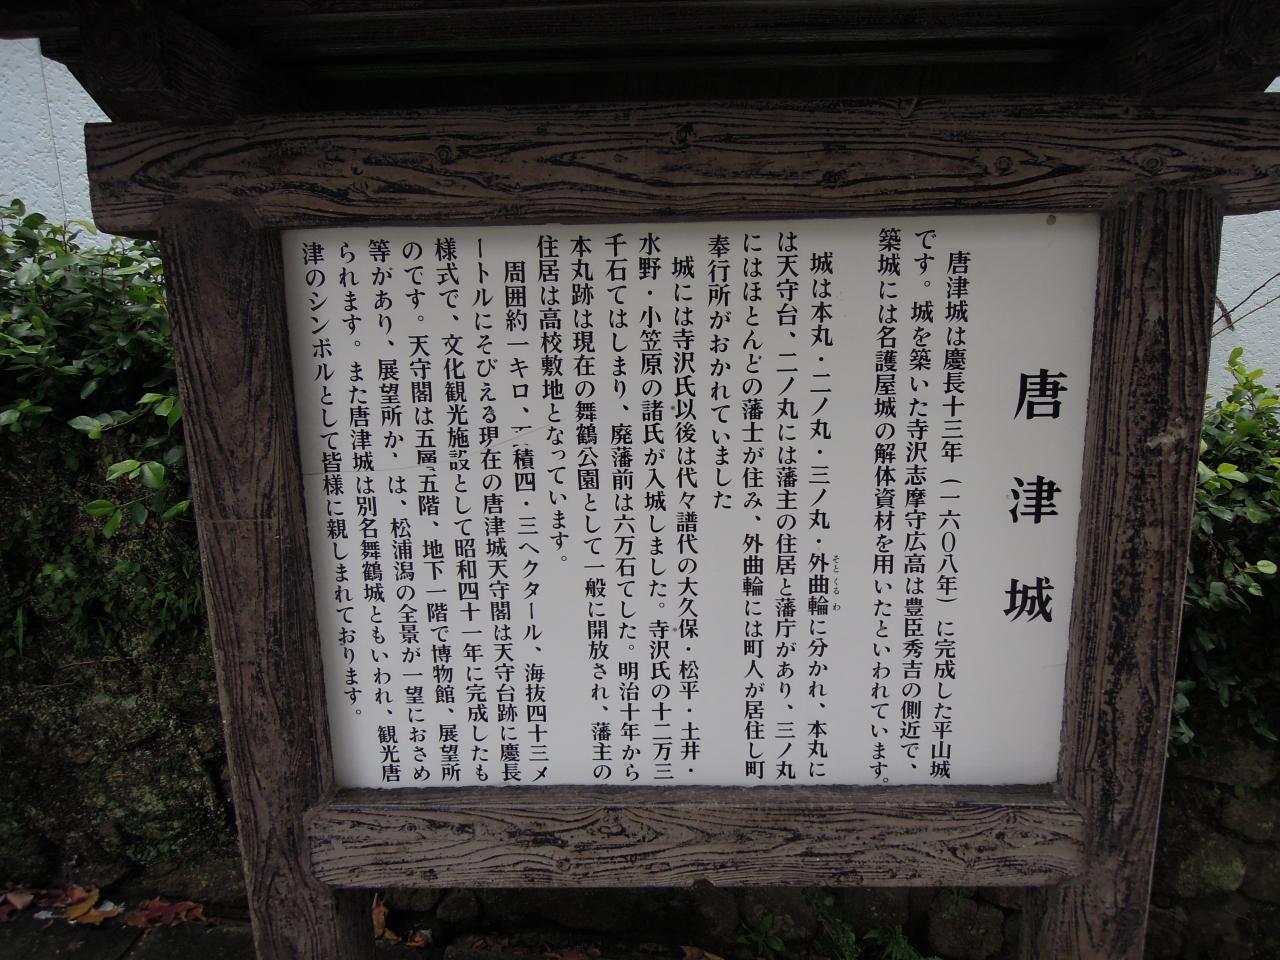 唐津城
唐津城は慶長十三年（一六〇八年）に完成した平山城
です。城を築いた寺沢志摩守広高は豊臣秀吉の側近で、
築城には名護屋城の解体資材を用いたといわれています。
城は本丸・二ノ丸・三ノ丸・外曲輪に分かれ、本丸に
そとくるわ
は天守台、二ノ丸には藩主の住居と藩庁があり、三ノ丸
にはほとんどの藩士が住み、外曲輪には町人が居住し町
奉行所がおかれていました
城には寺沢氏以後は代々譜代の大久保・松平・土井・
水野・小笠原の諸氏が入城しました。寺沢氏の十二万三
千石てはしまり、廃藩前は六万石てした。明治十年から
本丸跡は現在の舞鶴公園として一般に開放され、藩主の
住居は高校敷地となっています。
周囲約一キロ、積四・三ヘクタール、海抜四十三メ
ートルにそびえる現在の唐津城天守閣は天守台跡に慶長
様式で、文化観光施設として昭和四十一年に完成したも
のです。天守閣は五層五階、地下一階で博物館、展望所
等があり、展望所か、は、松浦潟の全景が一望におさめ
られます。また唐津城は別名舞鶴城ともいわれ、観光唐
津のシンボルとして皆様に親しまれております。